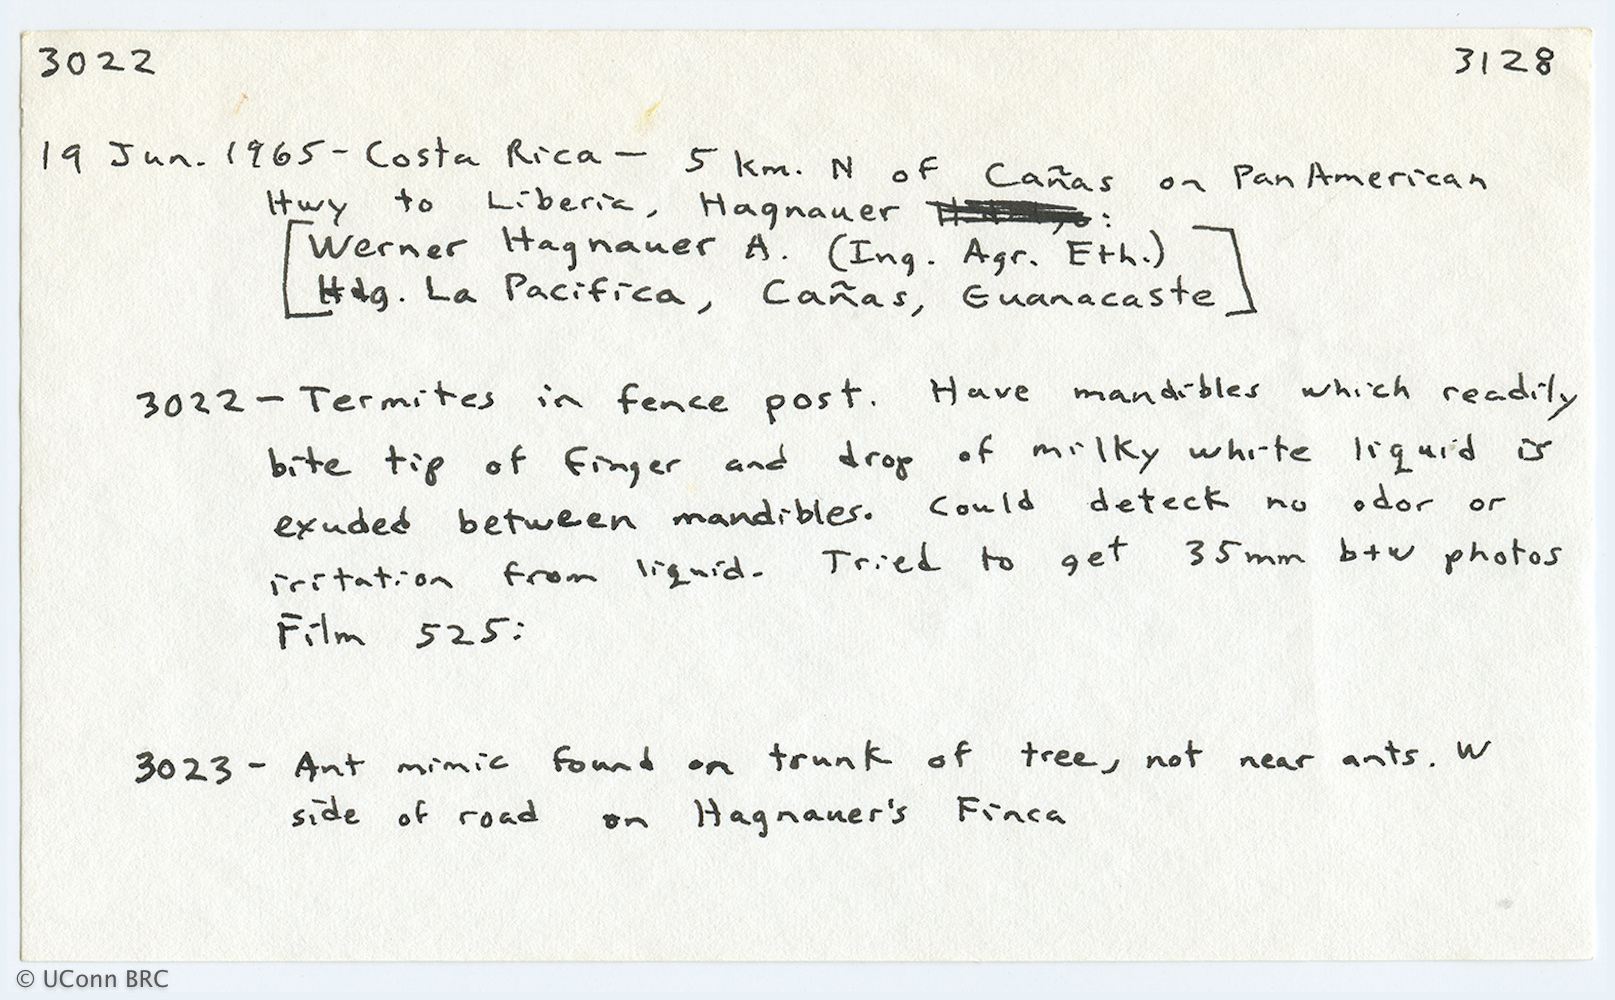 3022 3128
19 Jun. 1965 - Costa Rica - 5 km. N of Cañas on PanAmerican
Hwy to Liberia, Hagnauer :
[Werner Hagnauer A. (Ing. Agr. Eth.)
Hdg. La Pacifica, Cañas, Guanacaste]
3022 - Termites in fence post. Have mandibles which readily
bite tip of finger and drop of milky white liquid is
exuded between mandibles. Could deteck no odor or
irritation from liquid. Tried to get 35mm b+w photos
Film 525:
3023 - Ant mimic found on trunk of tree, not near ants. W
side of road on Hagnauer's Finca
© UConn BRC